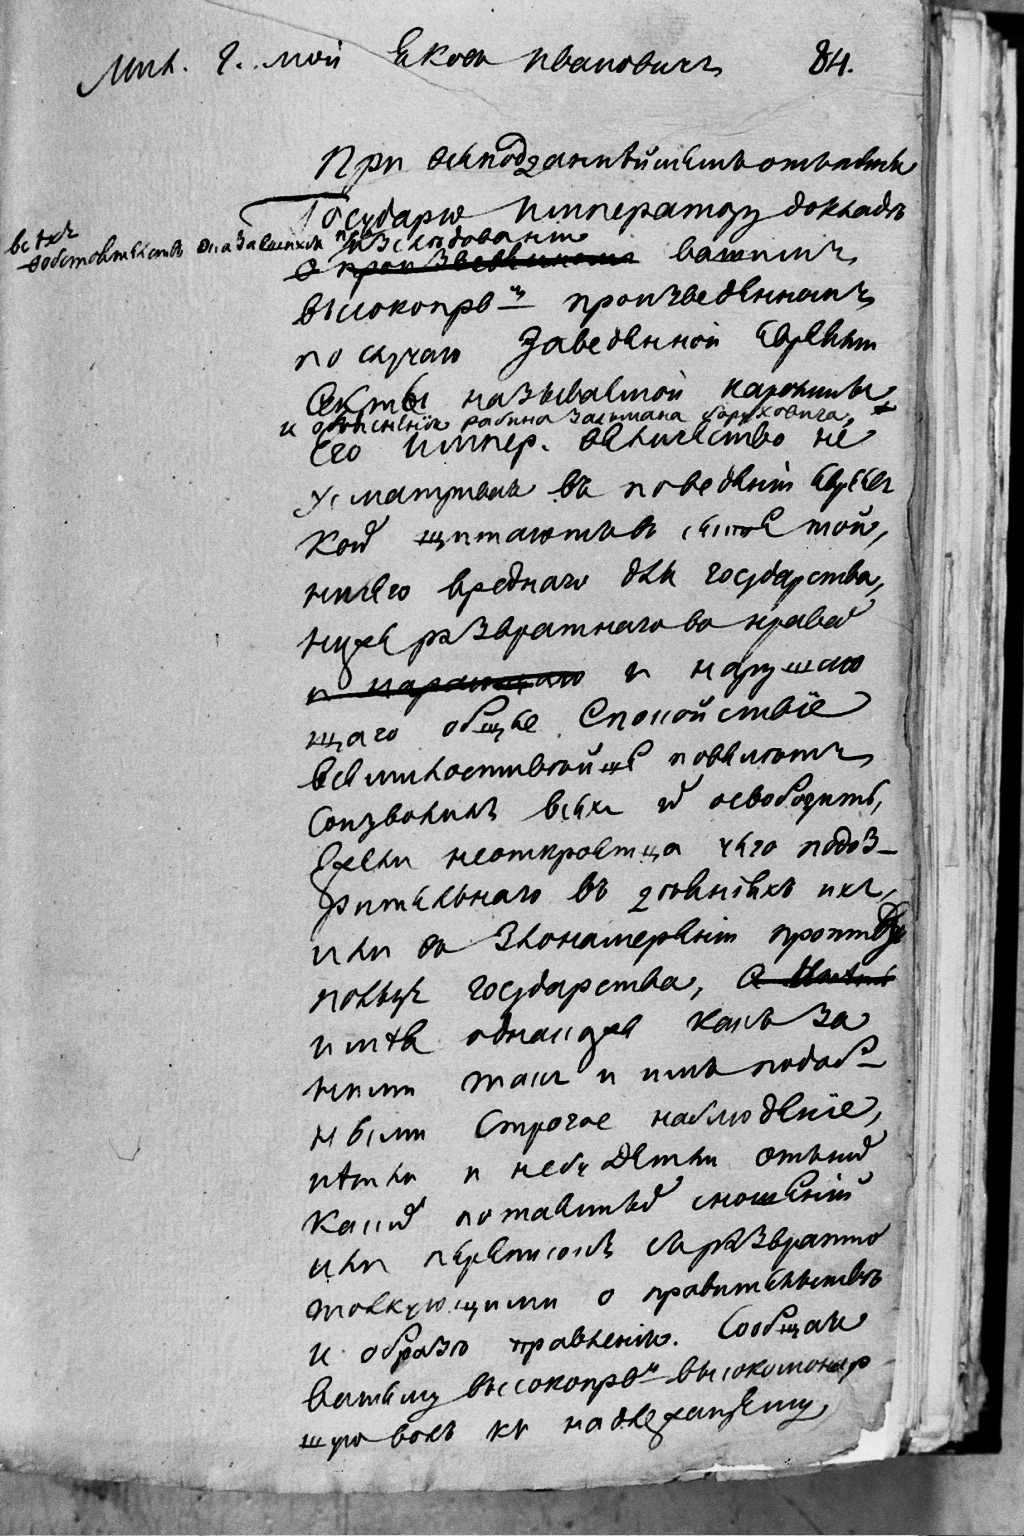 Мил. Г. мой Яковъ Ивановичъ 84.
При всеподданнѣйшемъ отъ меня
Государю Императору докладѣ
всѣхъ
обстоятельствъ оказавшихся по
изслѣдованію
о произведенномъ вашимъ
высокопрв-мъ произведеннымъ
по случаю заведенной Евреями
Секты называемой каролины
и объясненія рабина Залмана Боруховича,
Его Импер. величество не
усматривая въ поведеніи Евреевъ
кои щитаются въ сектѣ той,
ничего вреднаго для государства,
ниже развратнаго во нравах
и нарушаю и нарушаю
щаго общее Спокойствіе
всемилостивѣйше повелѣть
Соизволилъ всѣхъ их освободить,
Ежели неоткроется чего подоз-
рительнаго въ дѣяніяхъ ихъ,
или въ злонамереніи противу
пользы государства,
имѣя однакоже какъ за
ними такъ и имъ подоб-
ными Строгое наблюденіе,
нѣтъ ли и небудетъ ли отъ них
каких потаенных сношеній
или переписокъ съ развратно
толкующими о правительствѣ
и образѣ правленія. Сообщаю
вашему высокопрв-у высокомонар
шую волю къ надлежащему